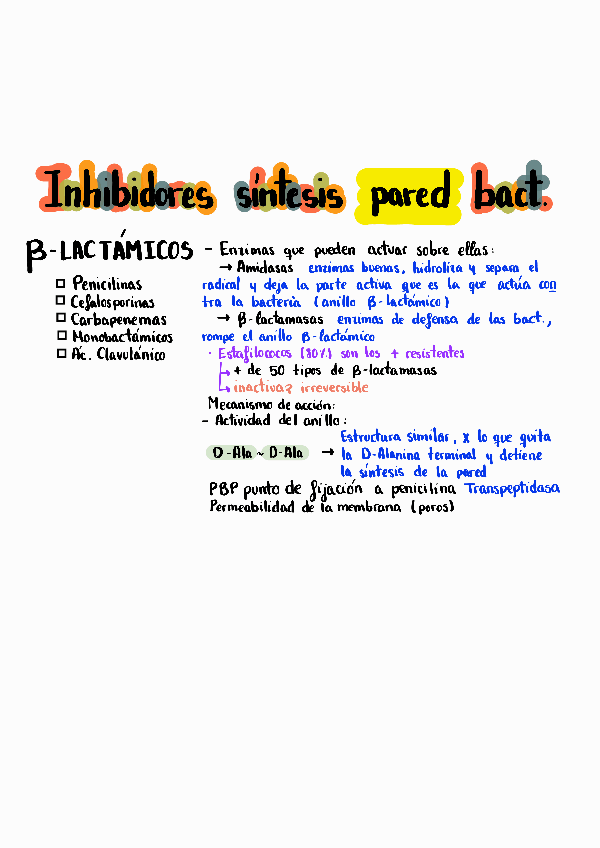 Inhibidores síntesis pared bact.
β-LACTÁMICOS
□ Penicilinas
□ Cefalosporinas
□ Carbapenemas
□ Monobactámicos
□ Ác. Clavulánico
- Enzimas que pueden actuar sobre ellas:
→ Amidasas enzimas buenas, hidroliza y separa el
radical y deja la parte activa que es la que actúa con
tra la bacteria (anillo β-lactámico)
→ β-lactamasas enzimas de defensa de las bact.,
rompe el anillo β-lactámico
· Estafilococos (80%) son los + resistentes
↳ + de 50 tipos de β-lactamasas
↳ inactivaz irreversible
Mecanismo de acción:
- Actividad del anillo:
D-Ala ~ D-Ala →
Estructura similar, x lo que quita
la D-Alanina terminal y detiene
la síntesis de la pared
PBP punto de fijación a penicilina Transpeptidasa
Permeabilidad de la membrana (poros)